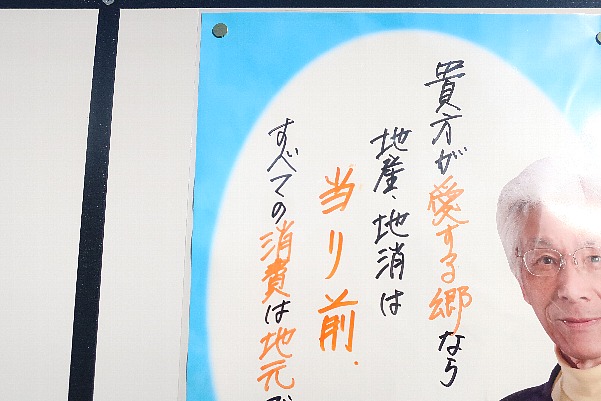 貴方が愛する郷なら
地産、地消は
当り前.
すべての消費は地元